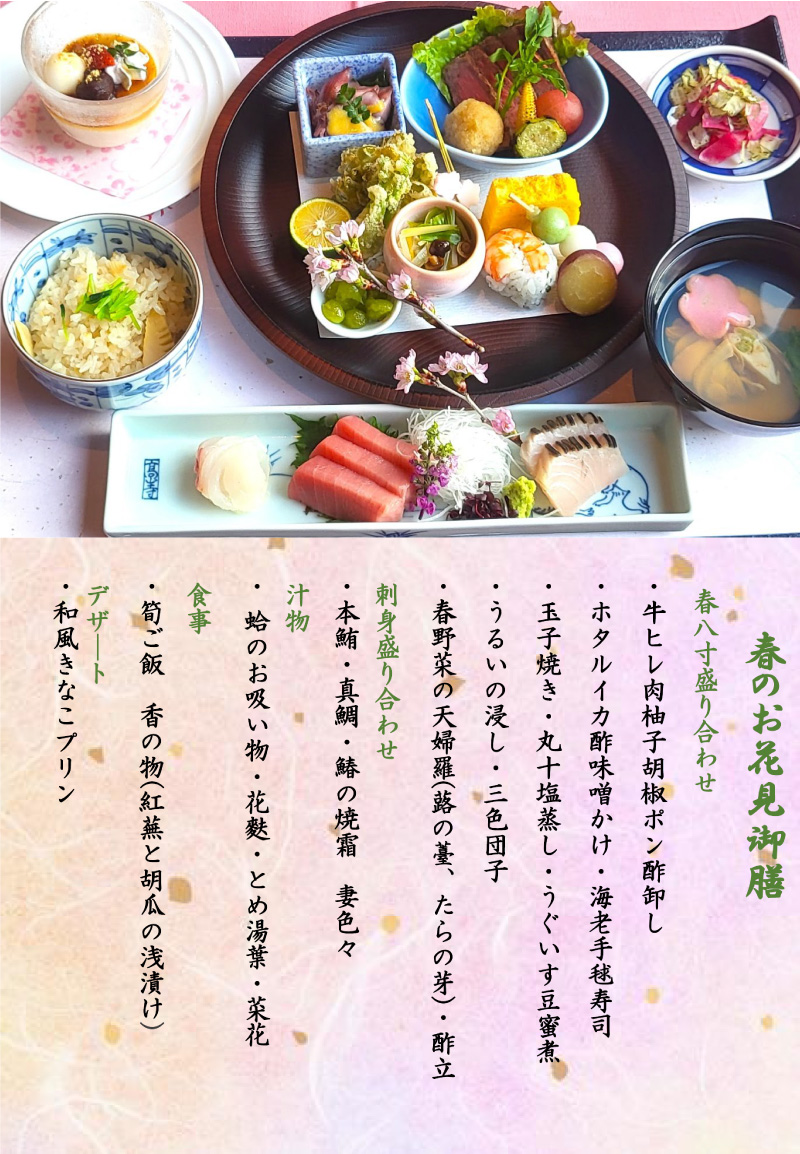 春のお花見御膳
春八寸盛り合わせ
・牛ヒレ肉柚子胡椒ポン酢卸し
・ホタルイカ酢味噌かけ・海老手毬寿司
・玉子焼き・丸十塩蒸し・うぐいす豆蜜煮
・うるいの浸し・三色団子
・春野菜の天婦羅(蕗の薹、たらの芽)・酢立
刺身盛り合わせ
・本鮪・真鯛・鰆の焼霜　妻色々
汁物
・蛤のお吸い物・花麩・とめ湯葉・菜花
食事
・筍ご飯　香の物(紅蕪と胡瓜の浅漬け)
デザート
・和風きなこプリン